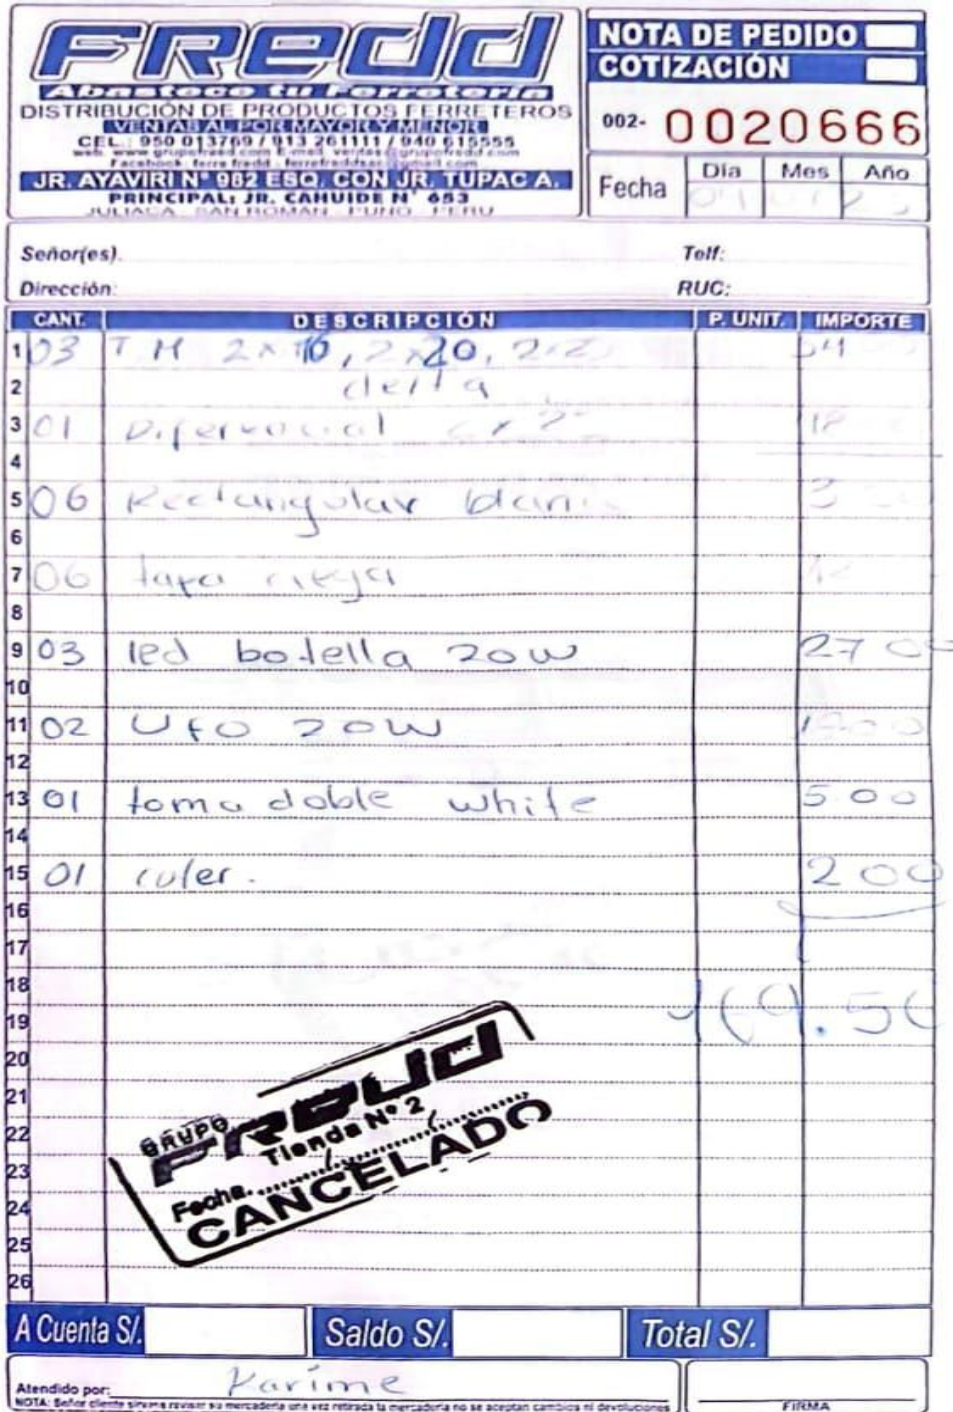 FREDD
Abastece tu Ferretería
DISTRIBUCIÓN DE PRODUCTOS FERRETEROS
VENTAS AL POR MAYOR Y MENOR
CEL.: 950 013769 / 913 261111 / 940 615555
JR. AYAVIRI N° 982 ESQ. CON JR. TUPAC A.
PRINCIPAL: JR. CAHUIDE N° 653
JULIACA - SAN ROMAN - PUNO - PERU
NOTA DE PEDIDO
COTIZACIÓN
002- 0020666
Fecha Día Mes Año
Señor(es). Telf:
Dirección: RUC:
CANT. DESCRIPCIÓN P. UNIT. IMPORTE
1 03 TM 2x16, 2x20,
2
3 01 Diferencial
4
5 06 Rectangular
6
7 06 tapa ciega
8
9 03 led botella 20W 27 00
10
11 02 UFO 20W
12
13 01 toma doble white 5.00
14
15 01 culer. 2 00
16
17
18
19
20
21
22
23
24
25
26
GRUPO
FREDD
Tienda N° 2
Fecha
CANCELADO
A Cuenta S/. Saldo S/. Total S/.
Atendido por: Karime
NOTA: Señor cliente sirvase revisar su mercaderia una vez retirada la mercaderia no se aceptan cambios ni devoluciones
FIRMA